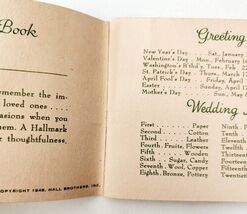 Book
remember the im-
loved ones ....
asions when you
em. A Hallmark
r thoughtfulness,
COPYRIGHT 1948, HALL BROTHERS, INC.
Greeting
New Year's Day .... Sat., January
Valentine's Day ... Mon., February 14
Washington's B'thd'y, Tues., Feb. 22
St. Patrick's Day . Thurs., March 17
April Fool's Day ... Friday, April
Easter ......... Sunday, April 17
Mother's Day ..... Sun., May 8
Wedding
First ......... Paper Ninth
Second ....... Cotton Tenth
Third ....... Leather Eleventh
Fourth, Fruits, Flowers Twelfth
Fifth ....... Wooden Thirteenth
Sixth .. Sugar, Candy Fourteenth
Seventh, Wool, Copper Fifteenth
Eighth, Bronze, Pottery Twentieth